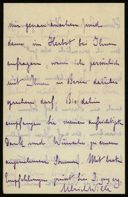 mir genau ansehen, und
dann im Herbst bei Ihnen
anfragen, wann ich persönlich
mit Ihnen in Berlin darüber
sprechen darf. Bis dahin
empfangen Sie meinen aufrichtigen
Dank und Wünsche zu einem
angenehmen Sommer. Mit besten
Empfehlungen